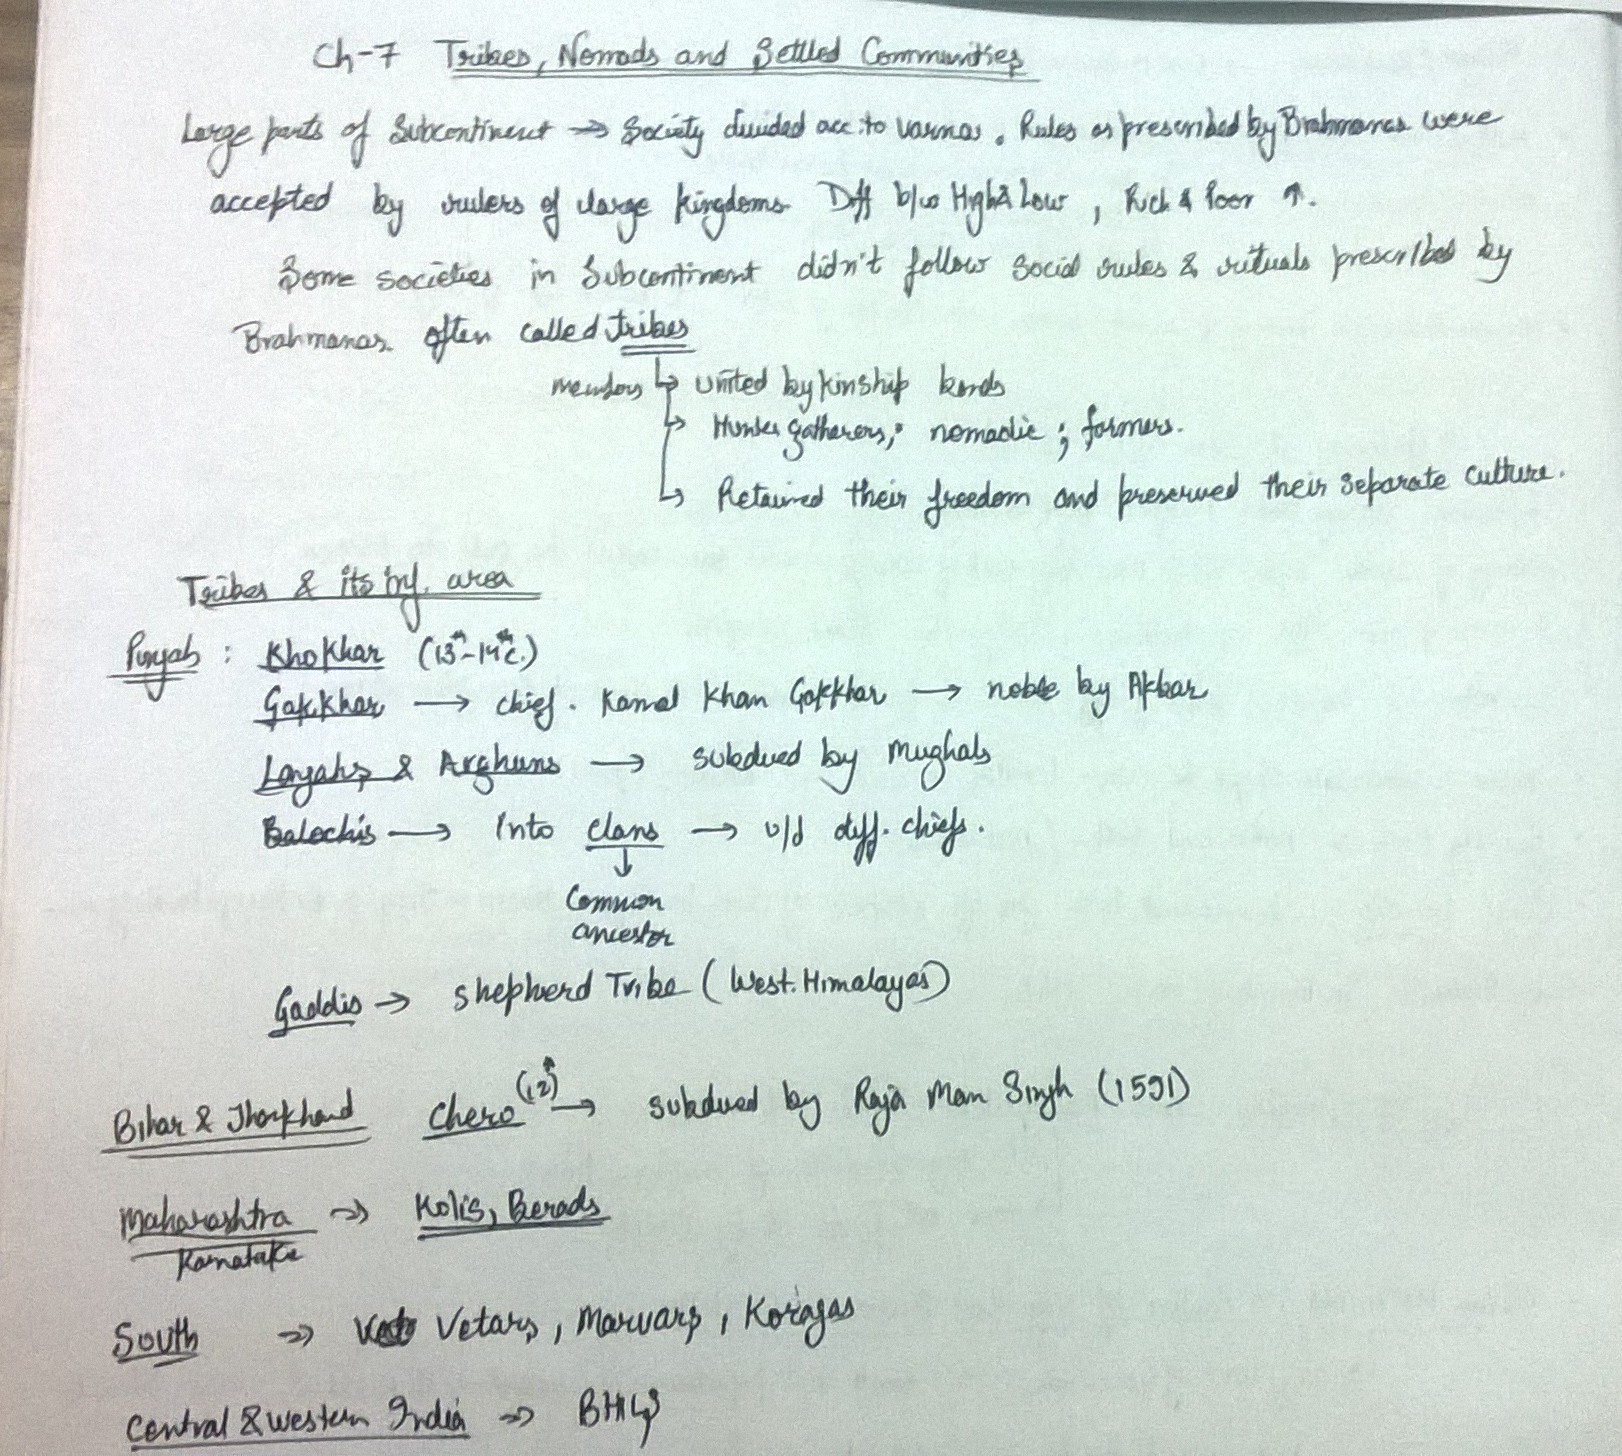 Ch-7 Tribes, Nomads and Settled Communities
Large parts of Subcontinent → Society divided acc. to varnas. Rules as prescribed by Brahmanas were
accepted by rulers of large kingdoms. Diff b/w High & Low, Rich & Poor ↑.
Some societies in Subcontinent didn't follow social rules & rituals prescribed by
Brahmanas often called tribes
members ↳ united by kinship bonds
↳ Hunter gatherers; nomadic; farmers.
↳ Retained their freedom and preserved their separate culture.
Tribes & its inf. area
Punjab : Khokhar (13th-14th c.)
Gakkhar → chief. Kamal Khan Gakkhar → noble by Akbar
Langahs & Arghuns → subdued by Mughals
Balochis → Into clans → u/d diff. chiefs.
↓
Common
ancestor
Gaddis → Shepherd Tribe (West. Himalayas)
Bihar & Jharkhand Chero (12th) → subdued by Raja Man Singh (1591)
Maharashtra → Kolis, Berads
Karnataka
South → Vetars, Marvars, Koragas
Central & Western India → BHILS